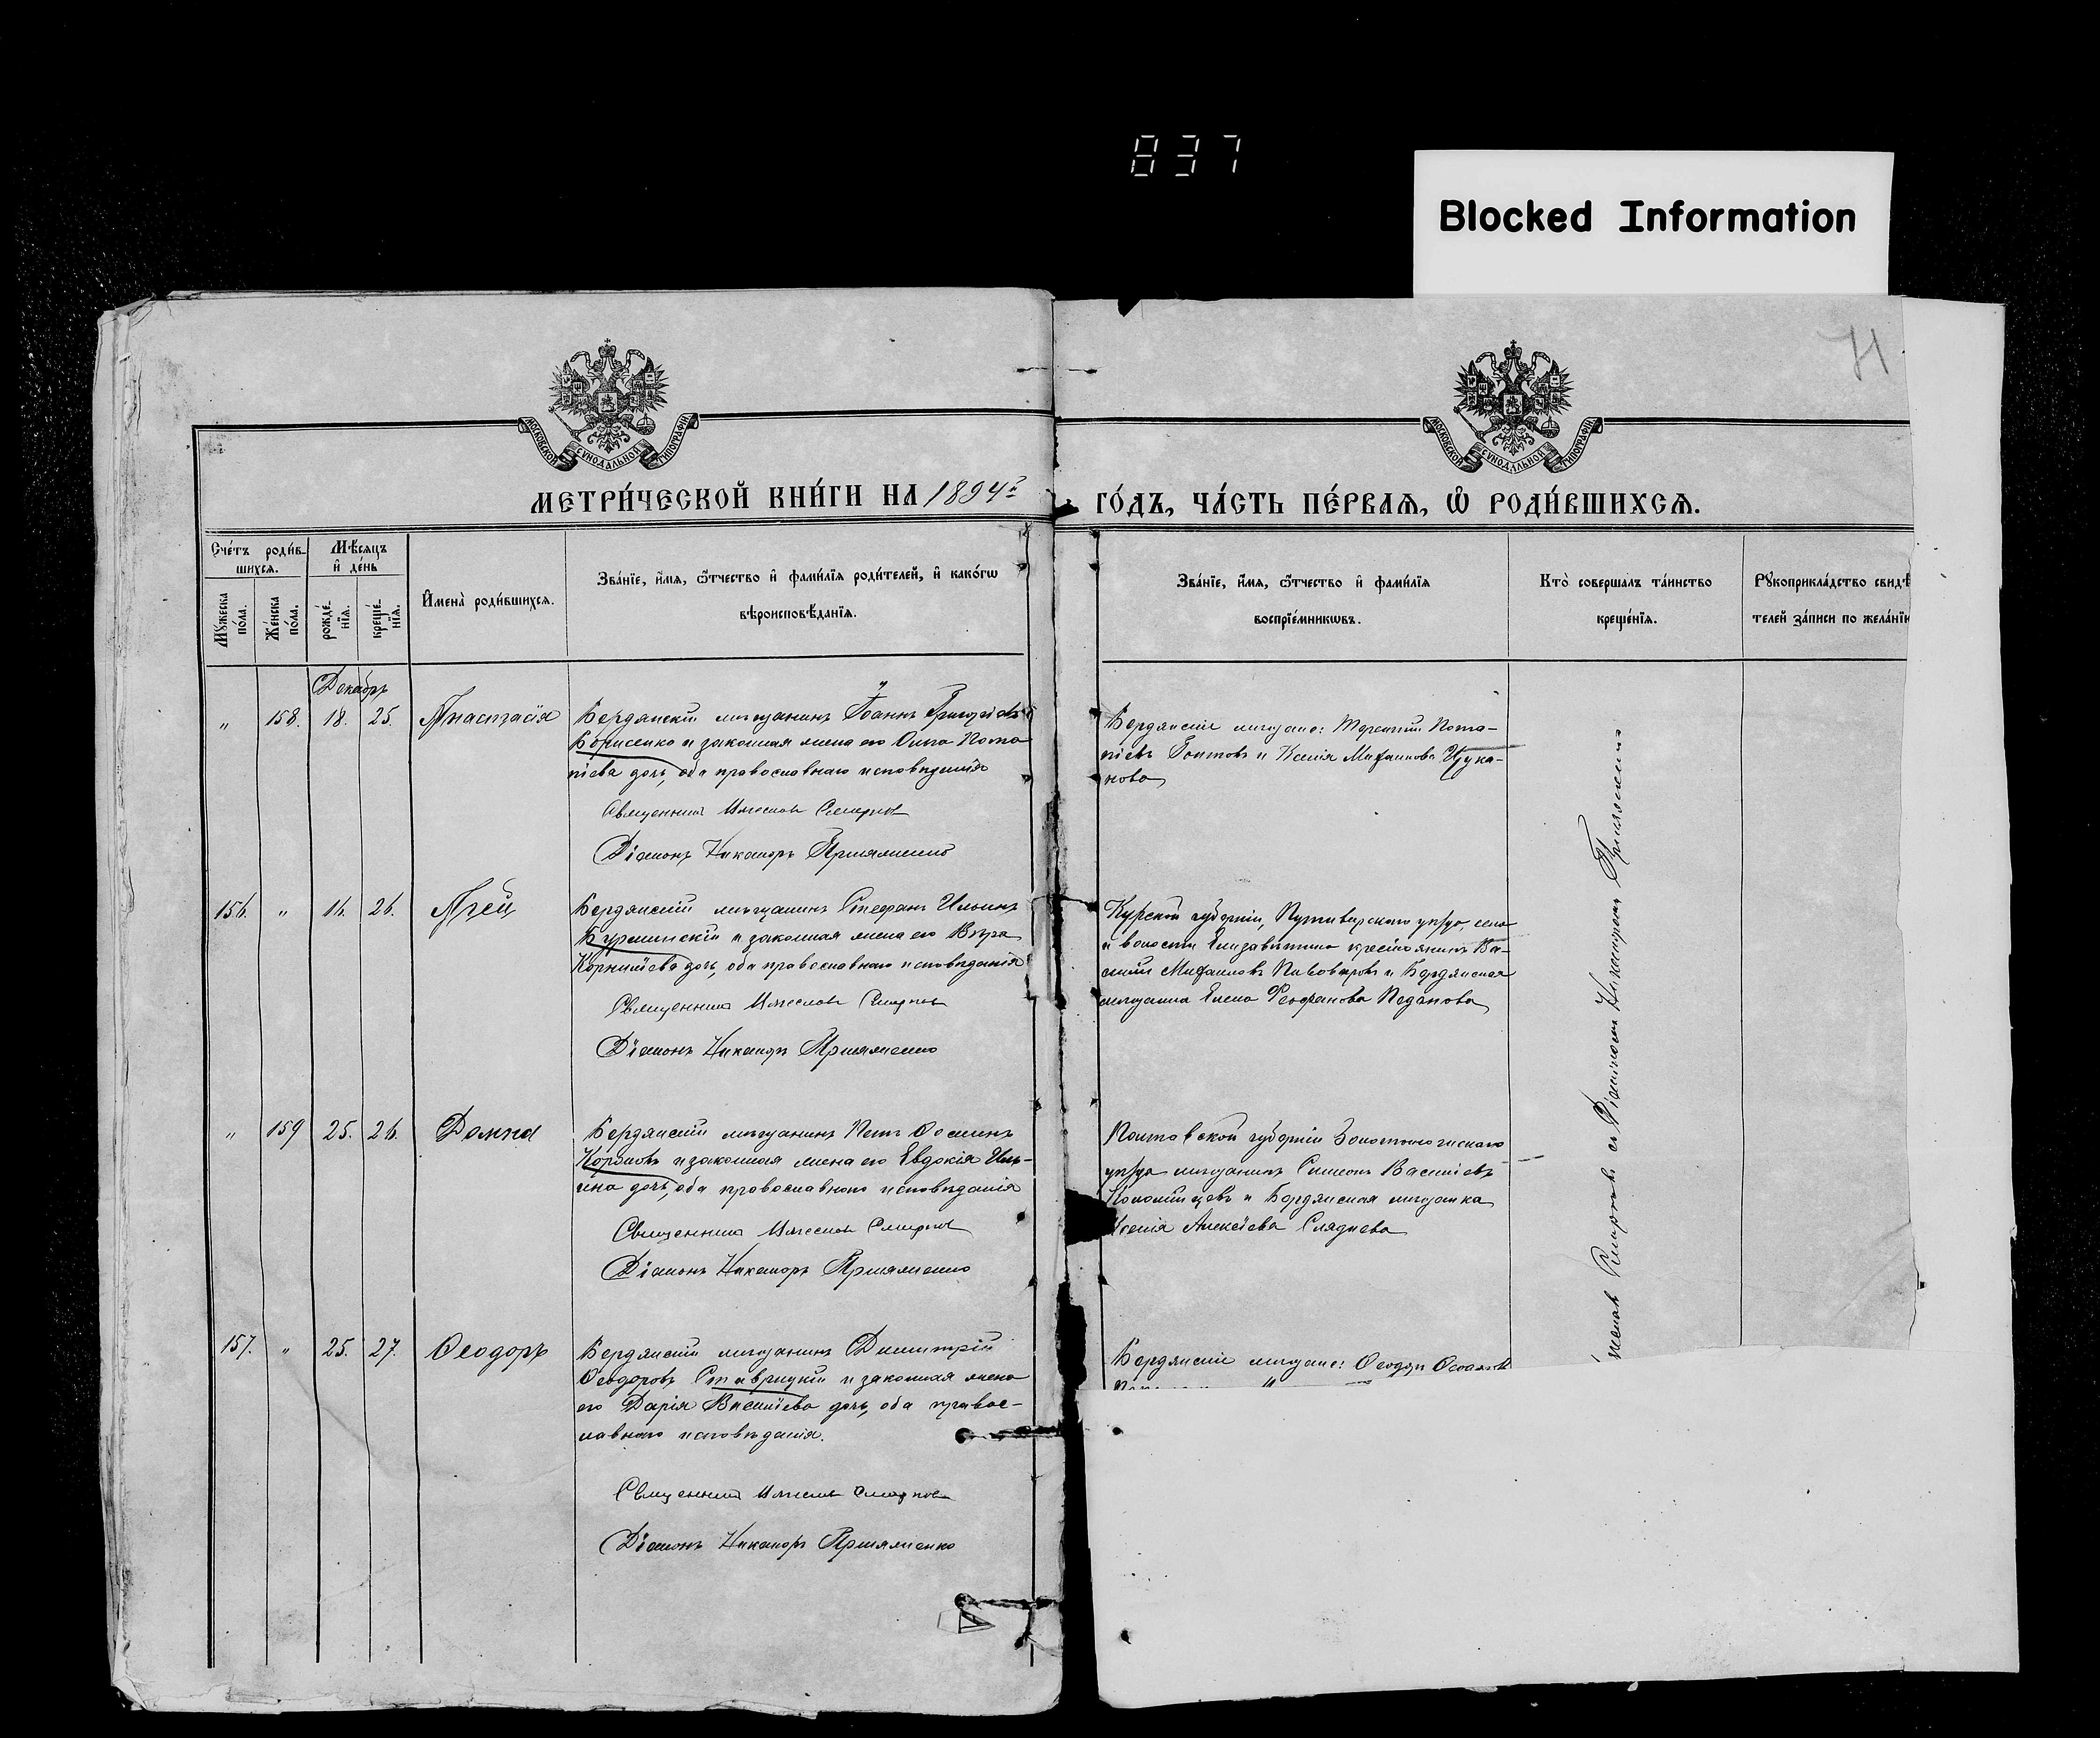 837
Blocked Information
71
МОСКОВСКОЙ СУНОДАЛЬНОЙ ТИПОГРАФІИ
МОСКОВСКОЙ СУНОДАЛЬНОЙ ТИПОГРАФІИ
МЕТРИ́ЧЕСКОЙ КНИ́ГИ НА 1894й
ГО́ДЪ, ЧА́СТЬ ПЕ́РВАѦ, Ѡ҆ РОДИ́ВШИХСѦ.
Сче́тъ роди́в-
шихсѧ.
Мѣ́сѧцъ
и҆ де́нь
Мꙋ́жеска
по́ла.
Же́нска
по́ла.
рожде́-
нїѧ.
креще́-
нїѧ.
И҆мена̀ роди́вшихсѧ.
Зва́нїе, и҆́мѧ, ѻ҆́тчество и҆ фами́лїѧ роди́телей, и҆ како́гѡ
вѣроисповѣ́данїѧ.
Зва́нїе, и҆́мѧ, ѻ҆́тчество и҆ фами́лїѧ
воспрїе́мникѡвъ.
Кто̀ соверша́лъ та́инство
креще́нїѧ.
Рꙋкоприкла́дство свидѣ́
телей за́писи по жела́нїю
Декабрь
" 158. 18. 25. Анастасія
Бердянскій мѣщанинъ Іоаннъ Григоріевъ
Борисенко и законная жена его Анна Пота-
піева дочь, оба православнаго исповѣданія
Священникъ Смирновъ
Діаконъ Никаноръ Пришляменко
Бердянскіе мѣщане: Терентій Пота-
піевъ и Ксенія Михаилова Цука-
нова
156. " 16. 26. Агей
Бердянскій мѣщанинъ Стефанъ Ильинъ
Бурминскій и законная жена его Вѣра
Корниліева дочь, оба православнаго исповѣданія
Священникъ Смирновъ
Діаконъ Никаноръ
Курской губерніи, Путивльскаго уѣзда, села
и волости крестьянинъ Ва-
силій Михаиловъ Пивоваровъ и Бердянская
мѣщанка Елена Феофанова
" 159 25. 26. Домна
Бердянскій мѣщанинъ Петръ
и законная жена его Евдокія Иль-
ина дочь, оба православнаго исповѣданія
Священникъ Смирновъ
Діаконъ Никаноръ
Полтавской губерніи Золотоношскаго
уѣзда мѣщанинъ Симеонъ Василіевъ
и Бердянская мѣщанка
Ксенія Алексіева Сляднева
157. " 25. 27. Ѳеодоръ
Бердянскій мѣщанинъ Димитрій
Ѳеодоровъ Ставрицкій и законная жена
его Дарія Василіева дочь, оба правос-
лавнаго исповѣданія.
Священникъ Смирновъ
Діаконъ Никаноръ
Бердянскіе мѣщане: Ѳеодоръ
Смирновъ съ Діакономъ Никаноромъ